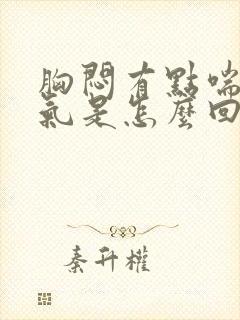 胸悶有點喘
氣是怎麼回
秦升權